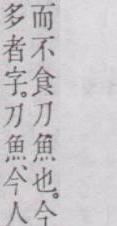 而不食刀魚也。今
多者字。刀魚、今人